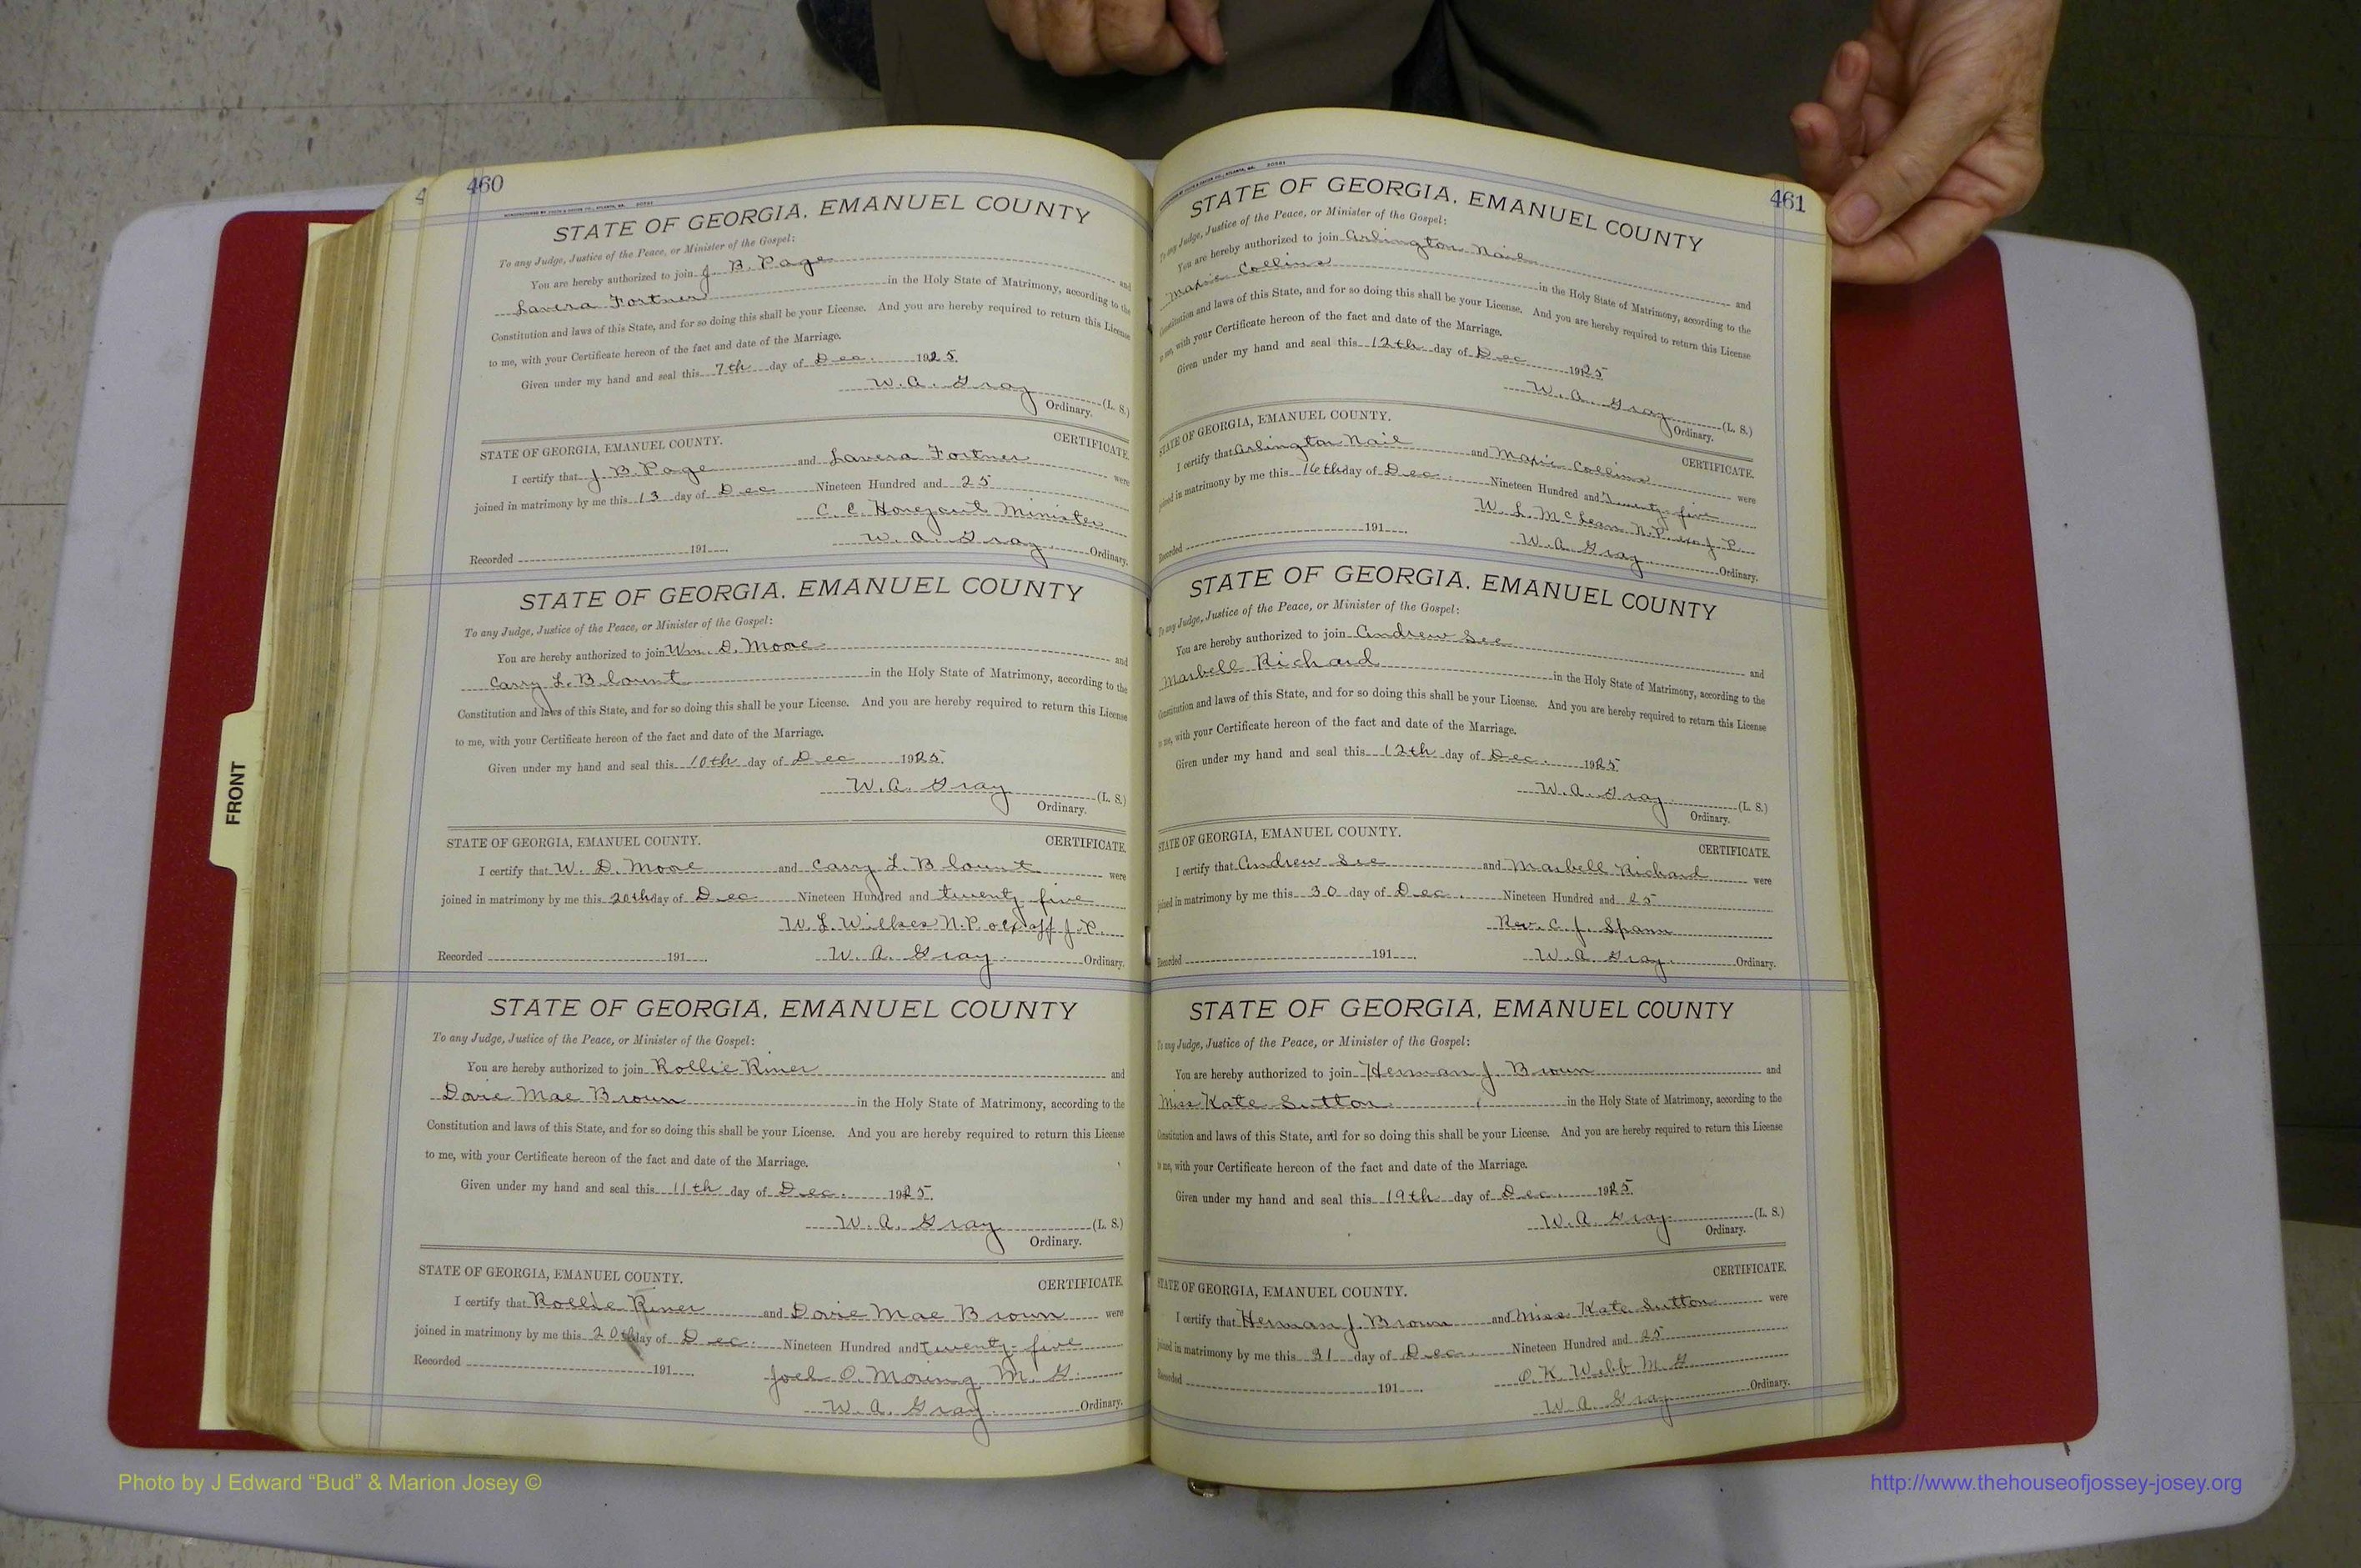 460
STATE OF GEORGIA, EMANUEL COUNTY
To any Judge, Justice of the Peace, or Minister of the Gospel:
You are hereby authorized to join J. B. Page and
Lavera Fortner in the Holy State of Matrimony, according to the
Constitution and laws of this State, and for so doing this shall be your License. And you are hereby required to return this License
to me, with your Certificate hereon of the fact and date of the Marriage.
Given under my hand and seal this 7th day of Dec. 1925.
W. A. Gray (L. S.)
Ordinary.
STATE OF GEORGIA, EMANUEL COUNTY. CERTIFICATE.
I certify that J. B. Page and Lavera Fortner were
joined in matrimony by me this 13 day of Dec Nineteen Hundred and 25
C. C. Minister
Recorded 191 W. A. Gray Ordinary.
STATE OF GEORGIA, EMANUEL COUNTY
To any Judge, Justice of the Peace, or Minister of the Gospel:
You are hereby authorized to join Wm. D. Moore and
Carry L. Blount in the Holy State of Matrimony, according to the
Constitution and laws of this State, and for so doing this shall be your License. And you are hereby required to return this License
to me, with your Certificate hereon of the fact and date of the Marriage.
Given under my hand and seal this 10th day of Dec 1925.
W. A. Gray (L. S.)
Ordinary.
STATE OF GEORGIA, EMANUEL COUNTY. CERTIFICATE.
I certify that W. D. Moore and Carry L. Blount were
joined in matrimony by me this 20th day of Dec. Nineteen Hundred and twenty five
W. L. Wilkes N. P. J. P.
Recorded 191 W. A. Gray Ordinary.
STATE OF GEORGIA, EMANUEL COUNTY
To any Judge, Justice of the Peace, or Minister of the Gospel:
You are hereby authorized to join Rollie Riner and
Dovie Mae Brown in the Holy State of Matrimony, according to the
Constitution and laws of this State, and for so doing this shall be your License. And you are hereby required to return this License
to me, with your Certificate hereon of the fact and date of the Marriage.
Given under my hand and seal this 11th day of Dec. 1925.
W. A. Gray (L. S.)
Ordinary.
STATE OF GEORGIA, EMANUEL COUNTY. CERTIFICATE.
I certify that Rollie Riner and Dovie Mae Brown were
joined in matrimony by me this 20th day of Dec. Nineteen Hundred and twenty-five
Recorded 191 Joel O. Moring M. G.
W. A. Gray Ordinary.
461
STATE OF GEORGIA, EMANUEL COUNTY
To any Judge, Justice of the Peace, or Minister of the Gospel:
You are hereby authorized to join Arlington Nail and
Collins in the Holy State of Matrimony, according to the
Constitution and laws of this State, and for so doing this shall be your License. And you are hereby required to return this License
to me, with your Certificate hereon of the fact and date of the Marriage.
Given under my hand and seal this 12th day of Dec 1925
W. A. Gray (L. S.)
Ordinary.
STATE OF GEORGIA, EMANUEL COUNTY. CERTIFICATE.
I certify that Arlington Nail and Collins were
joined in matrimony by me this 16th day of Dec. Nineteen Hundred and Twenty-five
W. L. McLean N. P. exo J. P.
Recorded 191 W. A. Gray Ordinary.
STATE OF GEORGIA, EMANUEL COUNTY
To any Judge, Justice of the Peace, or Minister of the Gospel:
You are hereby authorized to join Andrew See and
Marbell Richard in the Holy State of Matrimony, according to the
Constitution and laws of this State, and for so doing this shall be your License. And you are hereby required to return this License
to me, with your Certificate hereon of the fact and date of the Marriage.
Given under my hand and seal this 12th day of Dec. 1925.
W. A. Gray (L. S.)
Ordinary.
STATE OF GEORGIA, EMANUEL COUNTY. CERTIFICATE.
I certify that Andrew See and Marbell Richard were
joined in matrimony by me this 30 day of Dec. Nineteen Hundred and 25
Rev. C. J. Spann
Recorded 191 W. A. Gray Ordinary.
STATE OF GEORGIA, EMANUEL COUNTY
To any Judge, Justice of the Peace, or Minister of the Gospel:
You are hereby authorized to join Herman J. Brown and
Miss Kate Sutton in the Holy State of Matrimony, according to the
Constitution and laws of this State, and for so doing this shall be your License. And you are hereby required to return this License
to me, with your Certificate hereon of the fact and date of the Marriage.
Given under my hand and seal this 19th day of Dec. 1925.
W. A. Gray (L. S.)
Ordinary.
STATE OF GEORGIA, EMANUEL COUNTY. CERTIFICATE.
I certify that Herman J. Brown and Miss Kate Sutton were
joined in matrimony by me this 31 day of Dec. Nineteen Hundred and 25
O. K. Webb M. G.
Recorded 191 W. A. Gray Ordinary.
FRONT
Photo by J Edward “Bud” & Marion Josey ©
http://www.thehouseofjossey-josey.org